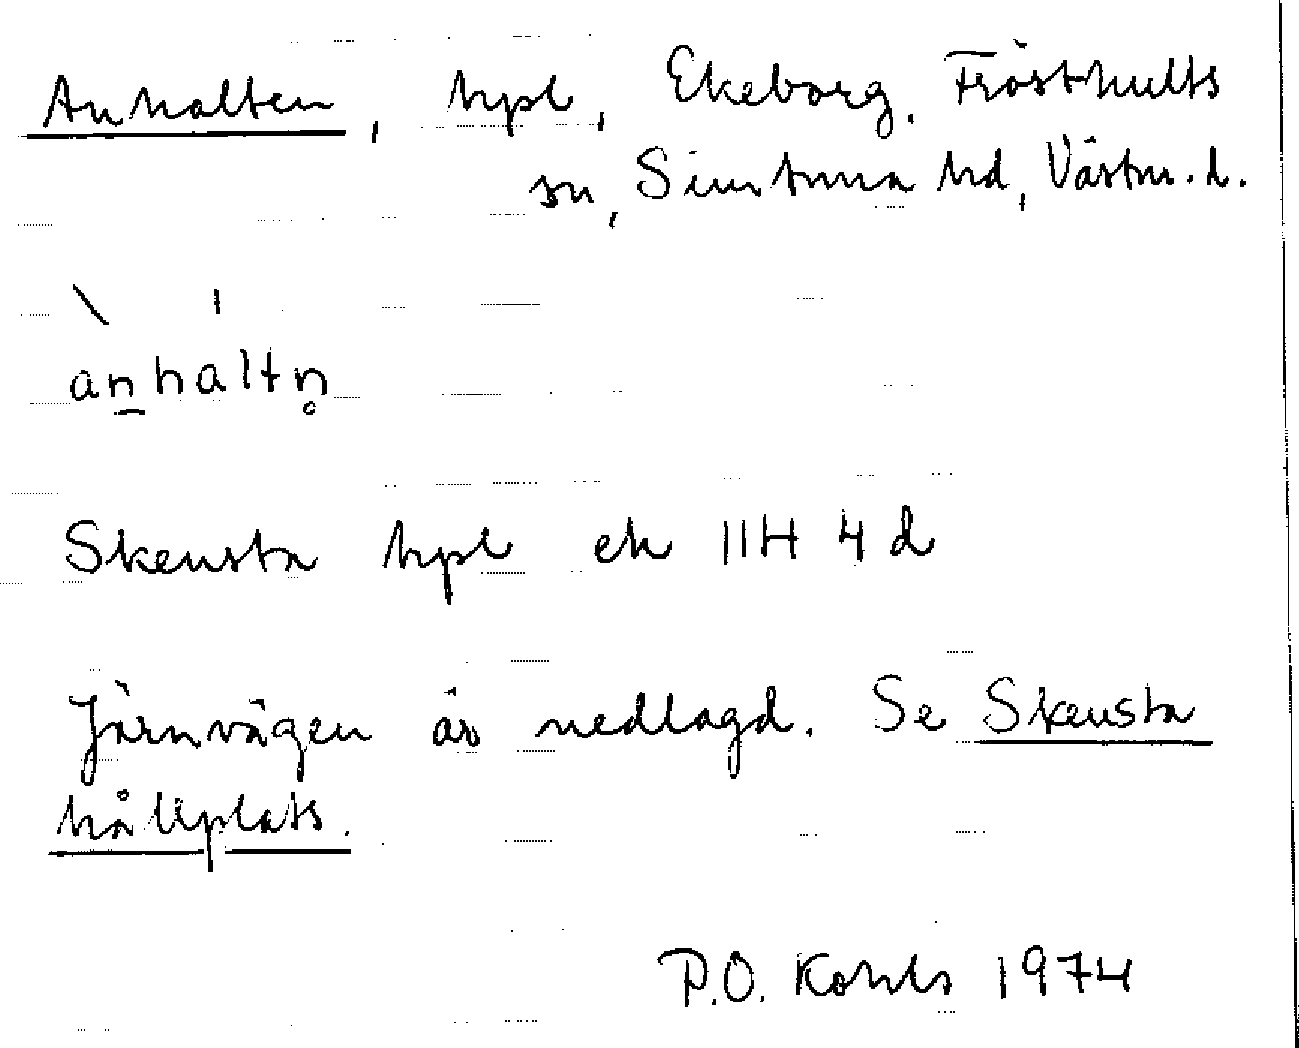 Anhalten, hpl, Ekeborg, Frösthults
sn, Simtuna hd, Västm. l.
anhaltn̥
Skensta hpl ek 11H 4d
Järnvägen är nedlagd. Se Skensta
hållplats.
P.O. 1974